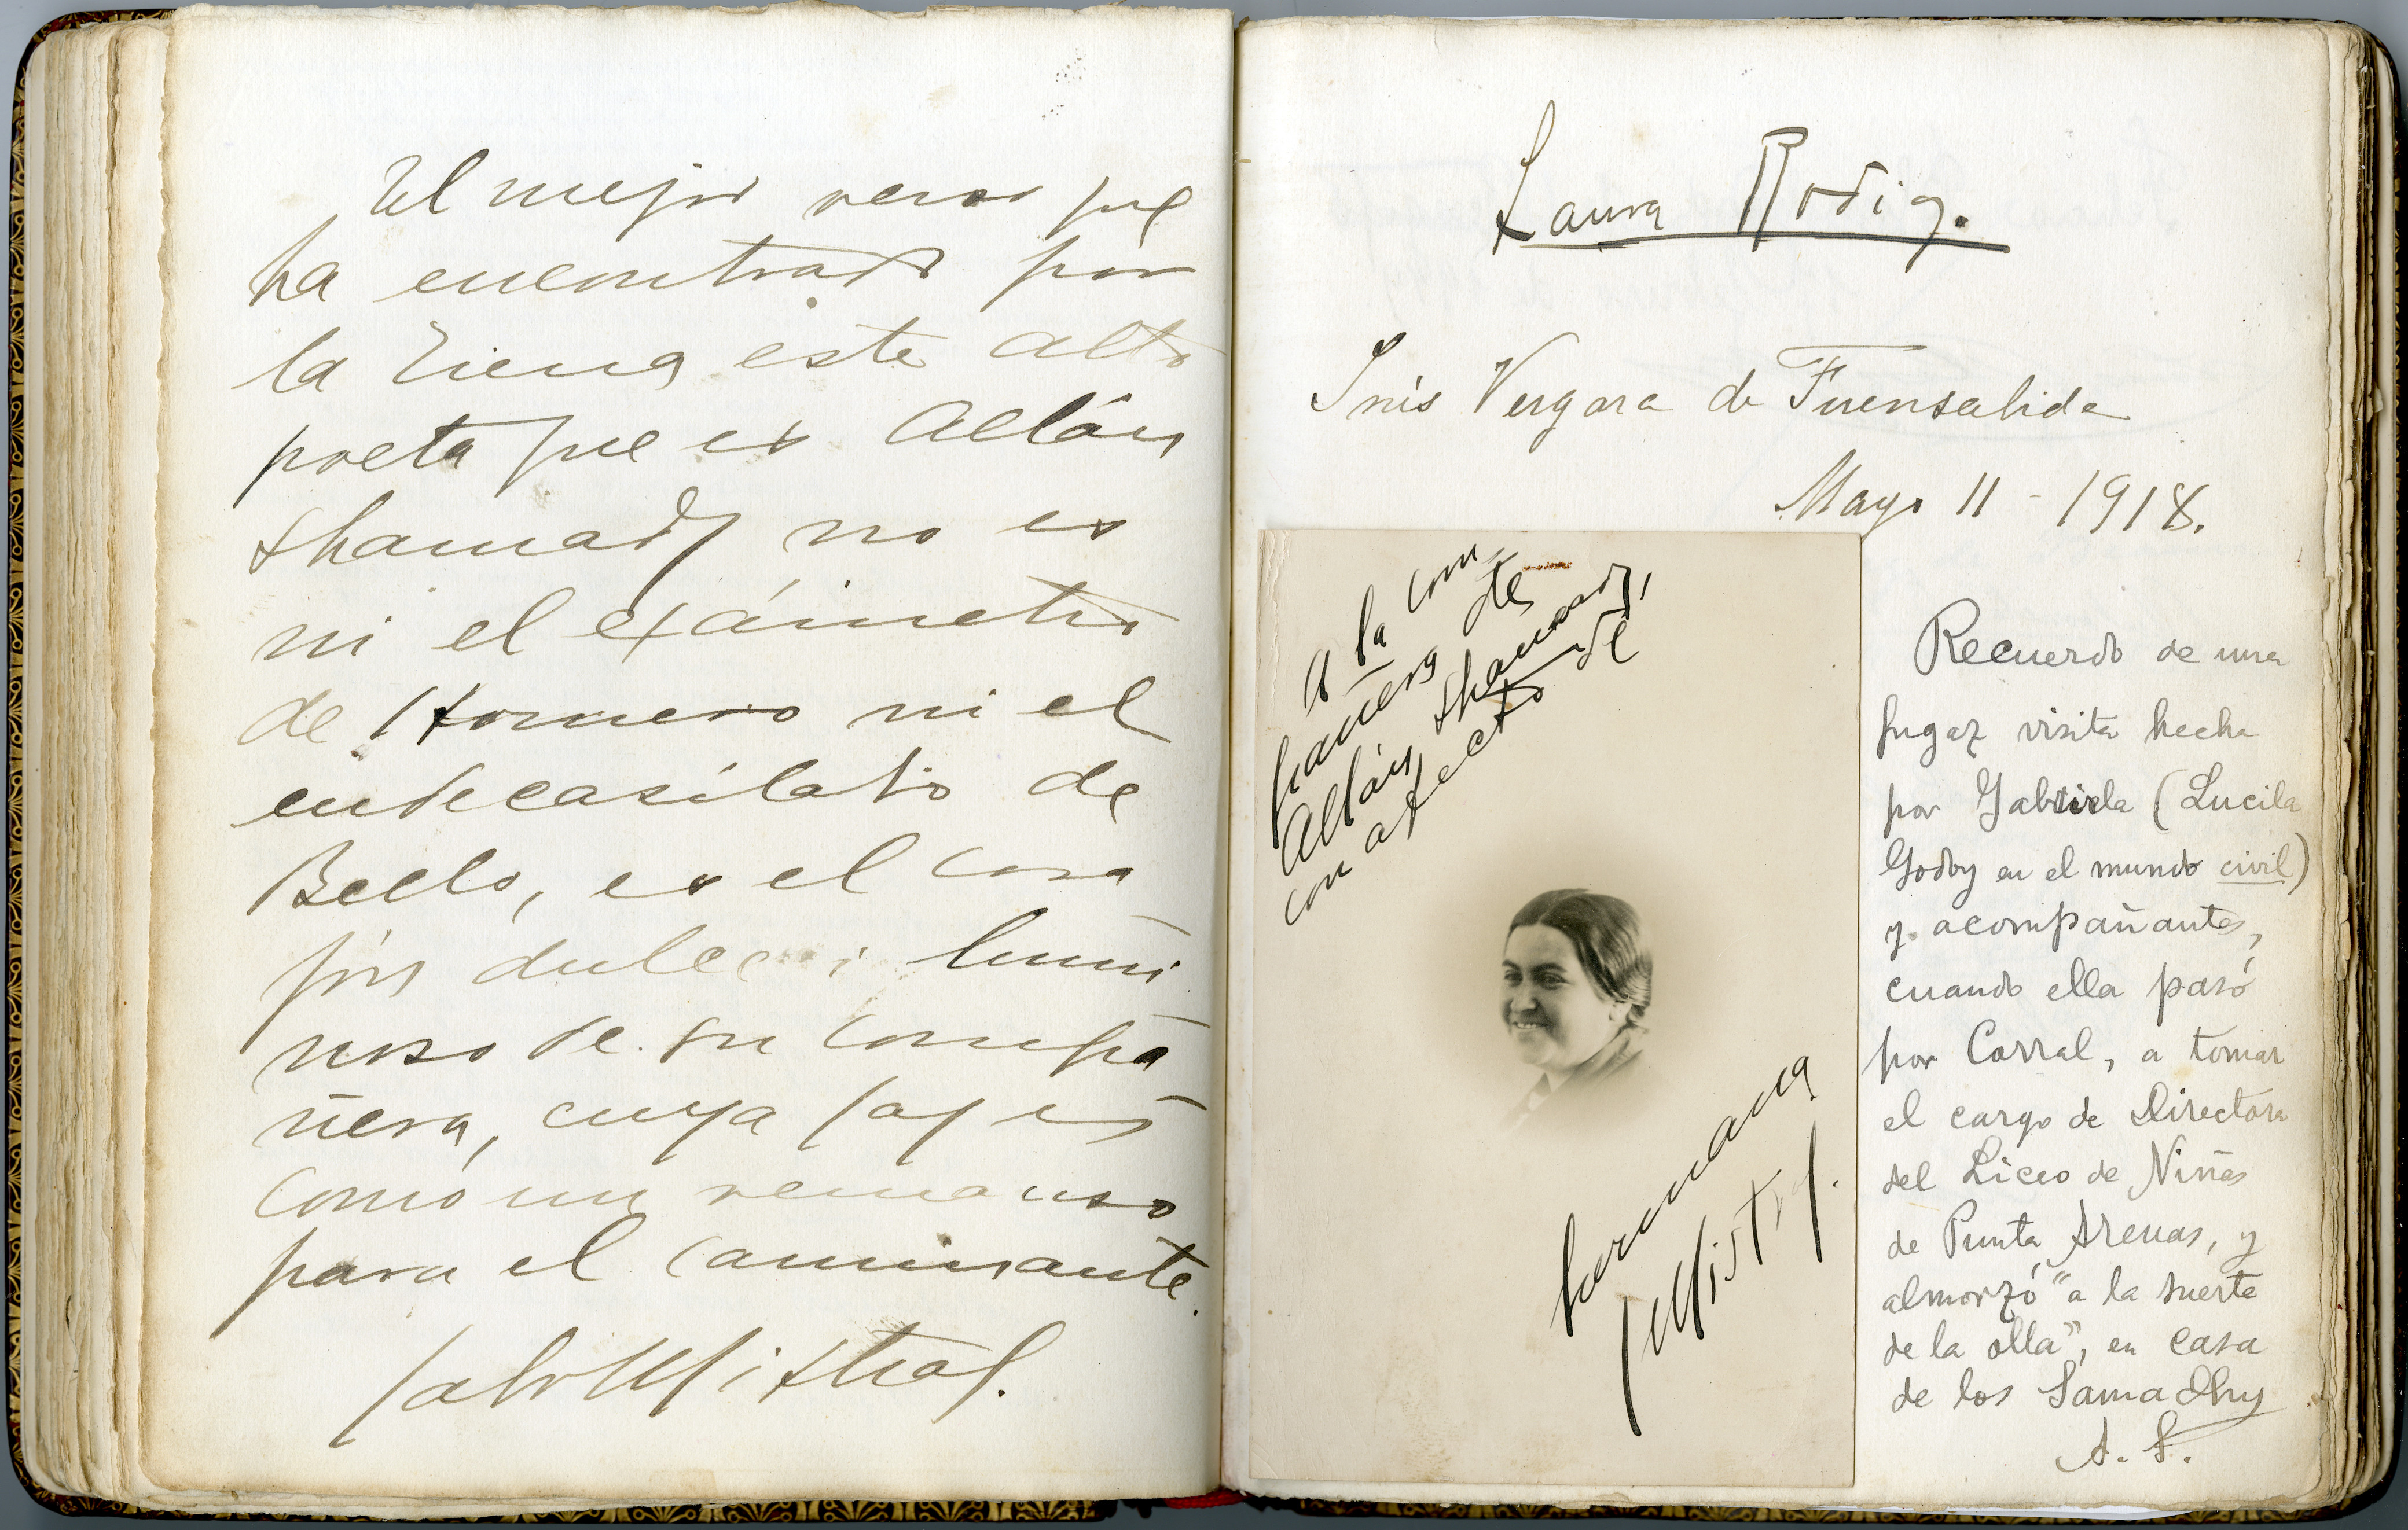 El mejor verso que
ha encontrado por
la Tierra este alto
poeta que es Allán
Shamady no es
ni el exámetro
de Homero ni el
endecasílabo de
Bello, es el cora
zón dulce i lumi
noso de su compa
ñera, cuya faz es
como un remanso
para el caminante.
Gabr Mistral.
Laura Rodig.
Inés Vergara de Fuensalida
Mayo 11 - 1918.
A la com
pañera de
Allán Shamady,
con afecto de
hermana
G Mistral.
Recuerdo de una
fugaz visita hecha
por Gabriela (Lucila
Godoy en el mundo civil)
y acompañantes,
cuando ella pasó
por Corral, a tomar
el cargo de Directora
del Liceo de Niñas
de Punta Arenas, y
almorzó "a la suerte
de la olla", en casa
de los Samadhy
A. S.